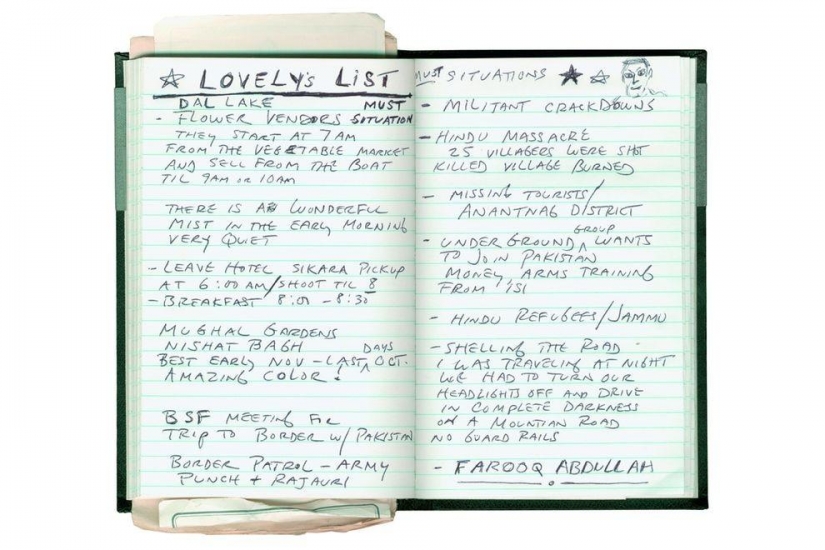 LOVELYs LIST
DAL LAKE MUST
- FLOWER VENDORS SITUATION
THEY START AT 7 AM
FROM THE VEGETABLE MARKET
AND SELL FROM THE BOAT
TIL 9AM OR 10AM
THERE IS A WONDERFUL
MIST IN THE EARLY MORNING
VERY QUIET
- LEAVE HOTEL SIKARA PICKUP
AT 6:00 AM/SHOOT TIL 8
- BREAKFAST 8:00 - 8:30
MUGHAL GARDENS
NISHAT BAGH DAYS
BEST EARLY NOV - LAST OCT.
AMAZING COLOR!
BSF MEETING FOR
TRIP TO BORDER W/ PAKISTAN
BORDER PATROL - ARMY
PUNCH + RAJAURI
MUST SITUATIONS
- MILITANT CRACKDOWNS
- HINDU MASSACRE
25 VILLAGERS WERE SHOT
KILLED VILLAGE BURNED
- MISSING TOURISTS/
ANANTNAG DISTRICT
GROUP
- UNDERGROUND WANTS
TO JOIN PAKISTAN
MONEY, ARMS TRAINING
FROM ISI
- HINDU REFUGEES/JAMMU
- SHELLING THE ROAD
I WAS TRAVELING AT NIGHT
WE HAD TO TURN OUR
HEADLIGHTS OFF AND DRIVE
IN COMPLETE DARKNESS
ON A MOUNTIAN ROAD
NO GUARD RAILS
- FAROOQ ABDULLAH